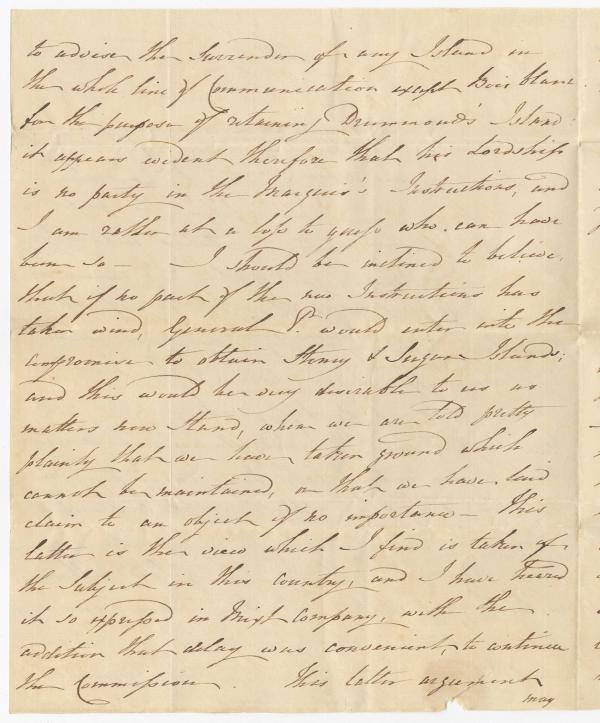 to advise the Surrender of any Island in
the whole line of Communication except Bois blanc
for the purpose of retaining Drummond's Island:
it appears evident therefore that his Lordship
is no party in the Marquis's Instructions, and
I am rather at a loss to guess who can have
been so — I should be inclined to believe,
that if no part of the new Instructions has
taken wind, General P. would enter into the
compromise to obtain Stoney & Sugar Islands;
and this would be very desirable to us as
matters now Stand, when we are told pretty
plainly that we have taken ground which
cannot be maintained, or that we have laid
claim to an object of no importance — This
latter is the view which I find is taken of
the Subject in this country, and I have heard
it so expressed in Mixt Company, with the
addition that delay was convenient, to continue
the Commission. This latter argument
may